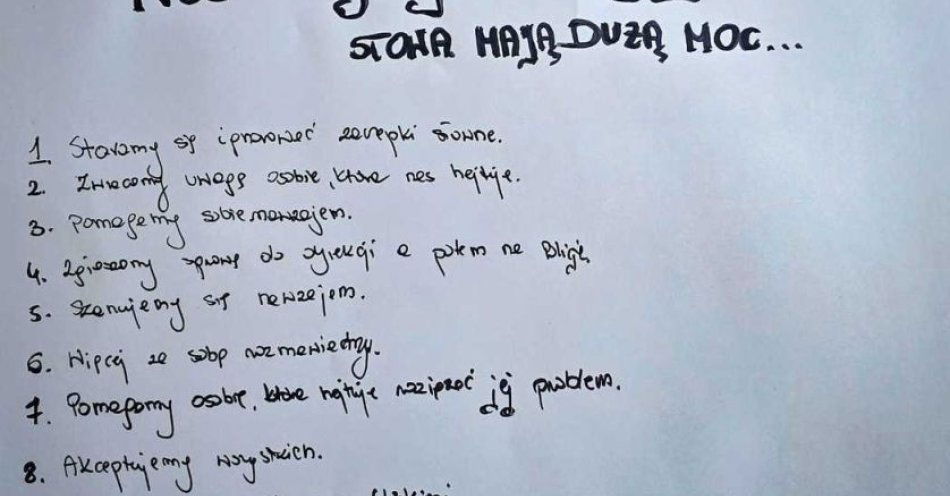 SŁOWA MAJĄ DUŻĄ MOC...
1. Staramy się ignorować zaczepki słowne.
2. Zwracamy uwagę osobie, która nas hejtuje.
3. Pomagamy sobie nawzajem.
4. Zgłaszamy sprawę do dyrekcji a potem na
5. Szanujemy się nawzajem.
6. Więcej ze sobą rozmawiamy.
7. Pomagamy osobie, która hejtuje rozwiązać jej problem.
8. Akceptujemy wszystkich.